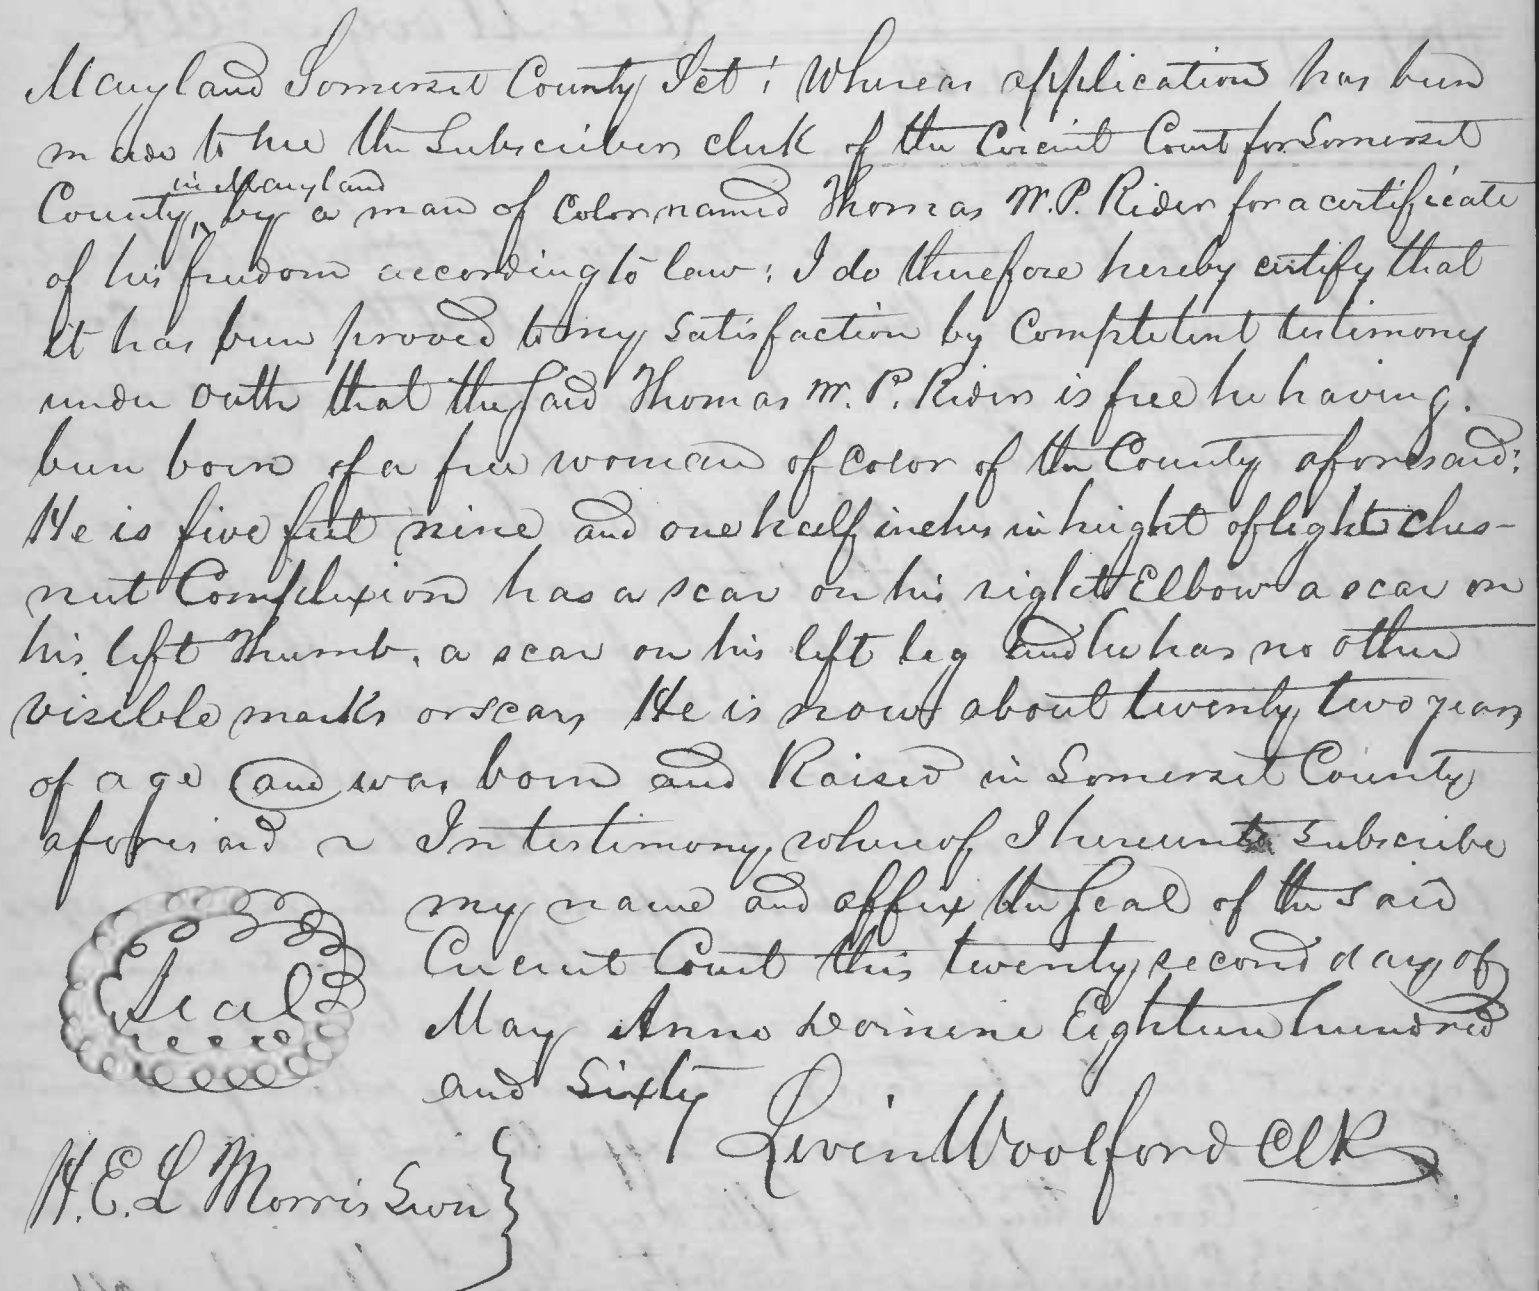 Maryland Somerset County Sct: Whereas application has been
made to me the Subscriber clerk of the Circuit Court for Somerset
in Maryland
County, by a man of Color named Thomas W. P. Rider for a certificate
of his freedom according to law: I do therefore hereby certify that
it has been proved to my satisfaction by Comptetent testimony
under oath that the said Thomas W. P. Rider is free he having
been born of a free woman of color of the County aforesaid:
He is five feet nine and one half inches in height of light ches-
nut Complexion has a scar on his right Elbow a scar on
his left Thumb, a scar on his left leg and he has no other
visible marks or scars He is now about twenty two years
of age and was born and Raised in Somerset County
aforesaid ~ In testimony whereof I hereunto subscribe
my name and affix the Seal of the said
Circuit Court this twenty second day of
Seal
May Anno Domini Eighteen hundred
and Sixty
Levin Woolford Clk
H. E. L Morris Swn